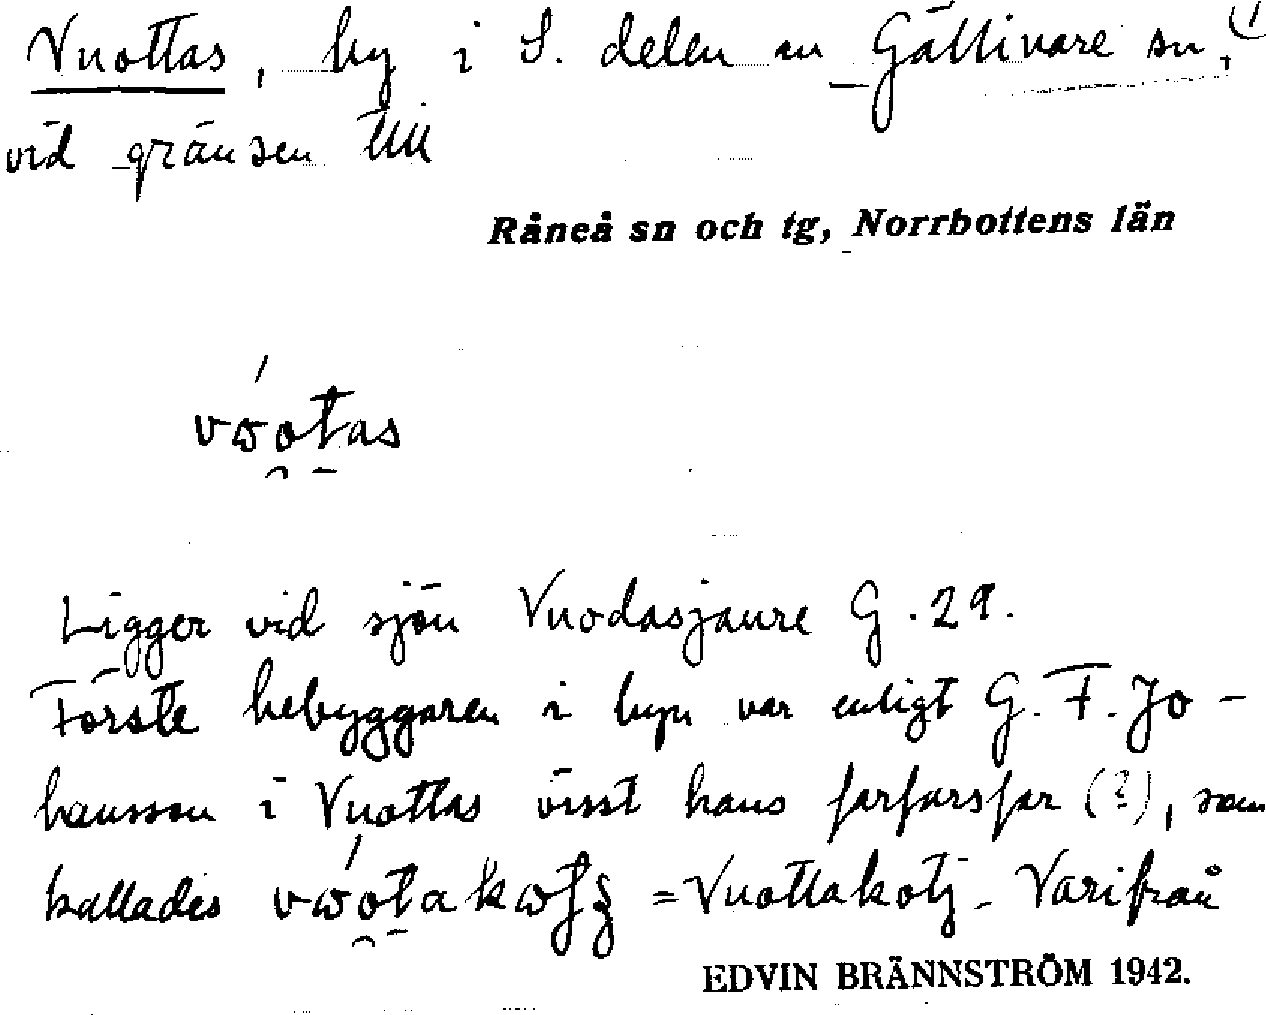 Vuottas, by i S. delen av Gällivare sn, (1
vid gränsen till
Råneå sn och tg, Norrbottens län
vωotas
Ligger vid sjön Vuodasjaure G. 29.
Förste bebyggaren i byn var enligt G. F. Jo-
hansson i Vuottas visst hans farfarsfar (?), som
kallades = Vuottakotj. Varifrån
EDVIN BRÄNNSTRÖM 1942.